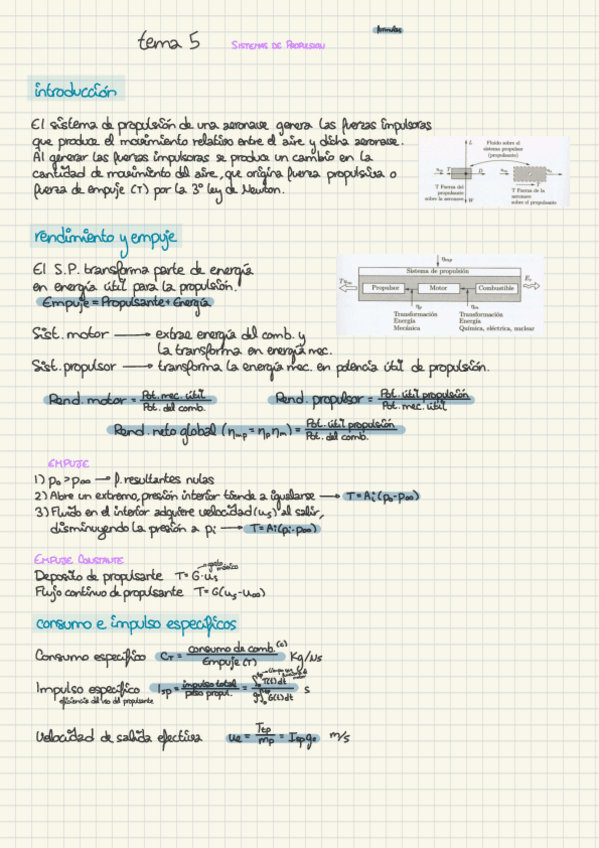 formulas
tema 5 SISTEMAS DE PROPULSIÓN
introducción
El sistema de propulsión de una aeronave genera las fuerzas impulsoras
que produce el movimiento relativo entre el aire y dicha aeronave.
Al generar las fuerzas impulsoras se produce un cambio en la
cantidad de movimiento del aire, que origina fuerza propulsiva o
fuerza de empuje (T) por la 3º ley de Newton.
L
Fluido sobre el
sistema propulsor
(propulsante)
T
D
T
T Fuerza del
propulsante
sobre la aeronave
W
T Fuerza de la
aeronave
sobre el propulsante
rendimiento y empuje
El S.P. transforma parte de energía
en energía útil para la propulsión.
Empuje = Propulsante + Energía
η_mp
Sistema de propulsión
Propulsor Motor Combustible
η_p η_m
Transformación Transformación
Energía Energía
Mecánica Química, eléctrica, nuclear
Sist. motor → extrae energía del comb. y
la transforma en energía mec.
Sist. propulsor → transforma la energía mec. en potencia útil de propulsión.
Rend. motor = Pot. mec. útil / Pot. del comb. Rend. propulsor = Pot. útil propulsión / Pot. mec. útil
Rend. neto global (η_mp = η_p η_m) = Pot. útil propulsión / Pot. del comb.
EMPUJE
1) p₀ > p∞ → f. resultantes nulas
2) Abre un extremo, presión interior tiende a igualarse → T = A_i (p₀ - p∞)
3) Fluido en el interior adquiere velocidad (u_s) al salir,
disminuyendo la presión a p_i → T = A_i (p_i - p∞)
EMPUJE CONSTANTE
Deposito de propulsante T = G · u_s → gasto másico
Flujo continuo de propulsante T = G (u_s - u∞)
consumo e impulso específicos
Consumo específico C_T = consumo de comb. (c) / Empuje (T) Kg/Ns
Impulso específico I_sp = impulso total / peso propul. = ∫₀^tp T(t) dt / g ∫₀^tp G(t) dt s
eficiencia del uso del propulsante
Velocidad de salida efectiva u_e = T t_p / m_p = I_sp g₀ m/s